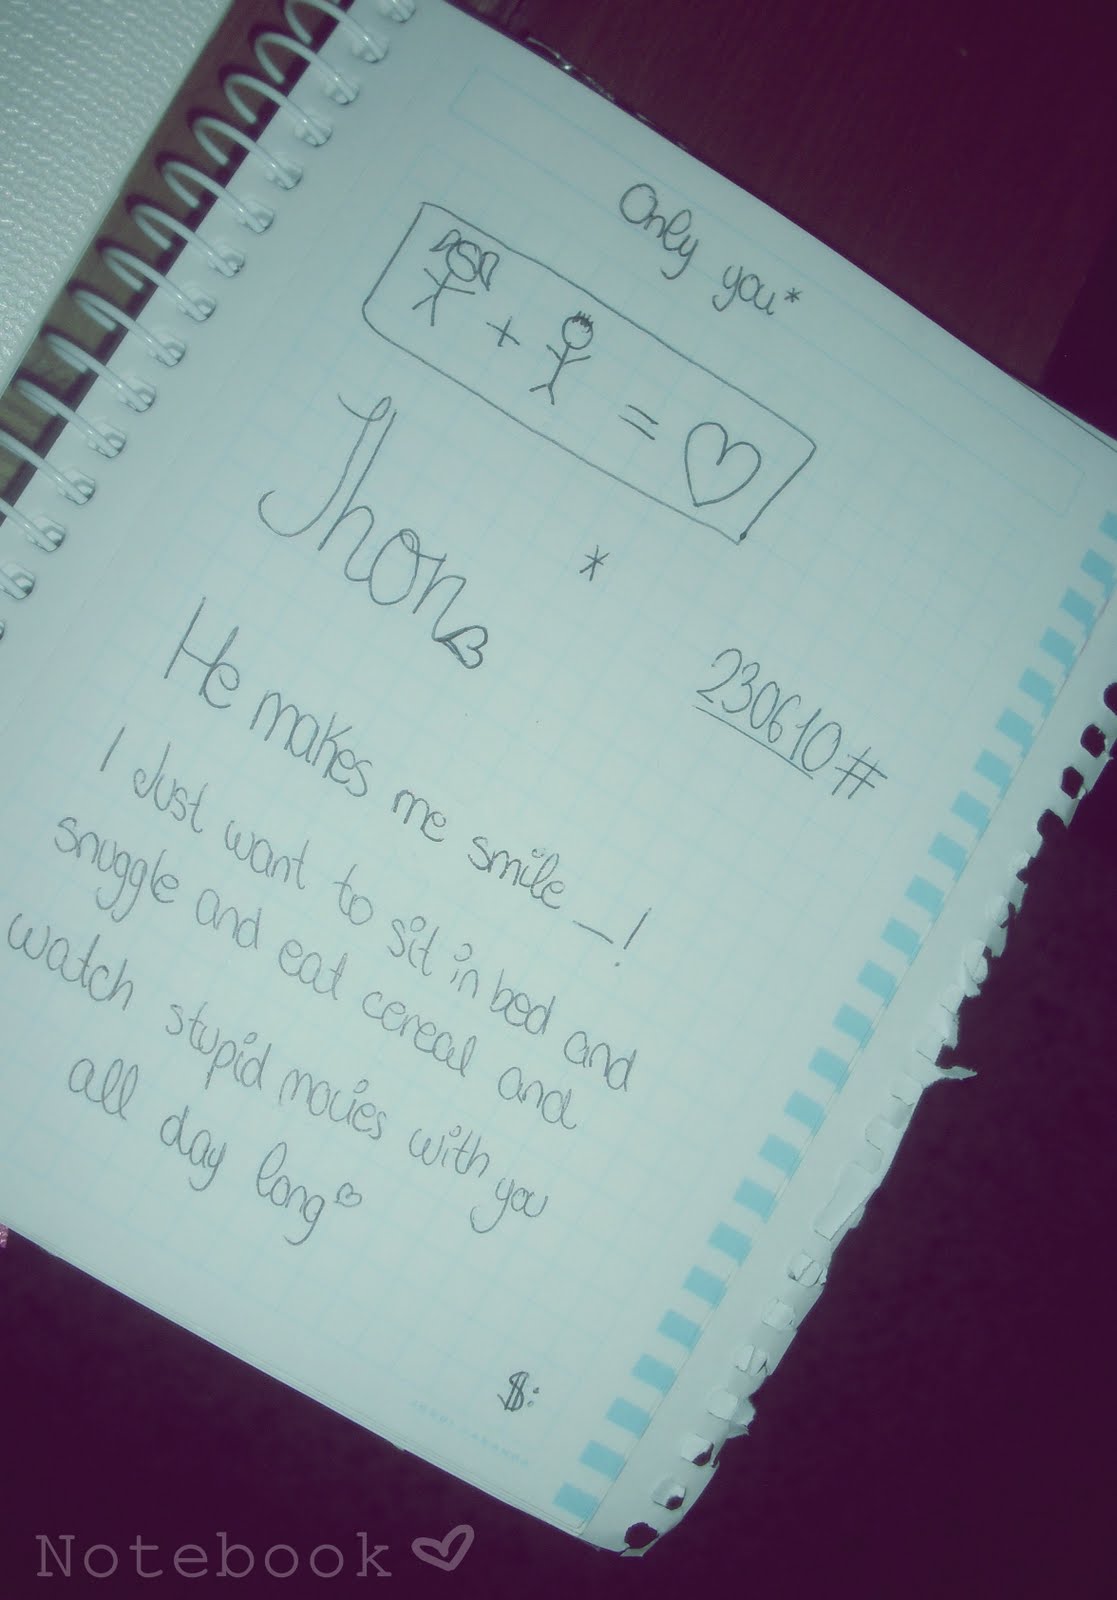 Only you*
+ =
*
Jhon
230610#
He makes me smile _!
I Just want to sit in bed and
snuggle and eat cereal and
watch stupid movies with you
all day long
$:
Notebook